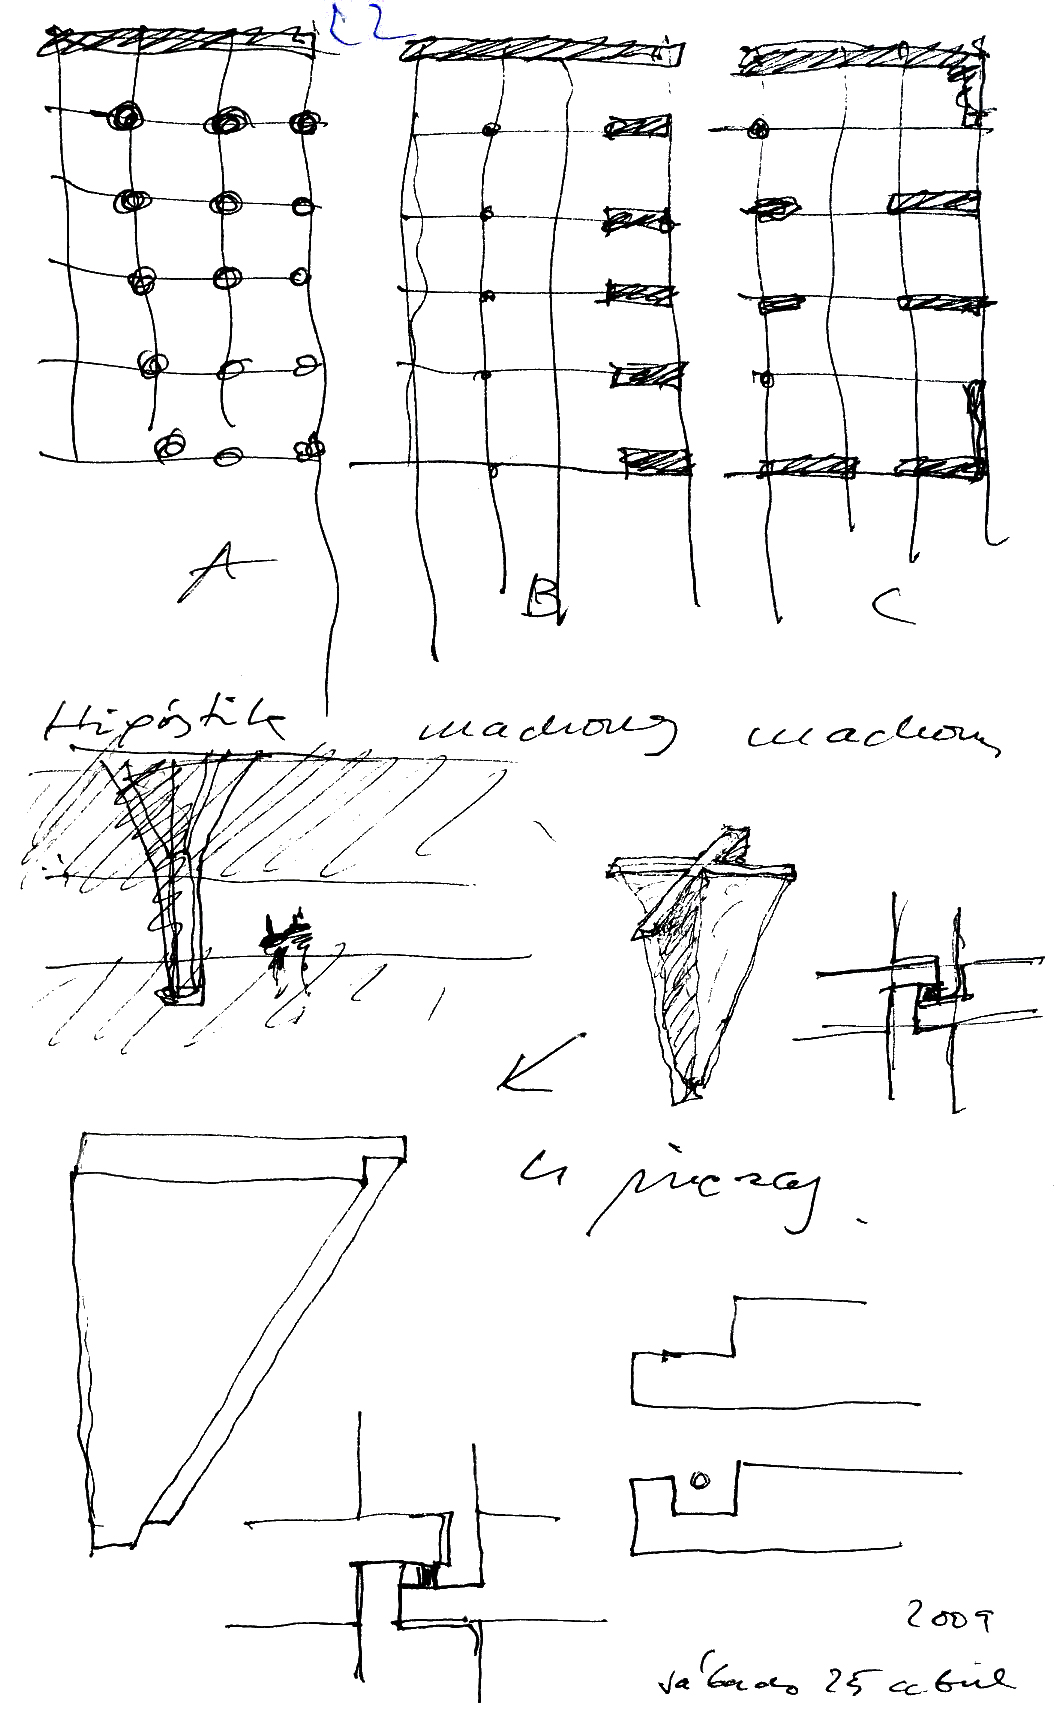 C2
A
B
C
Hipóstila
machones
machones
4 piezas
2009
sábado 25 abril